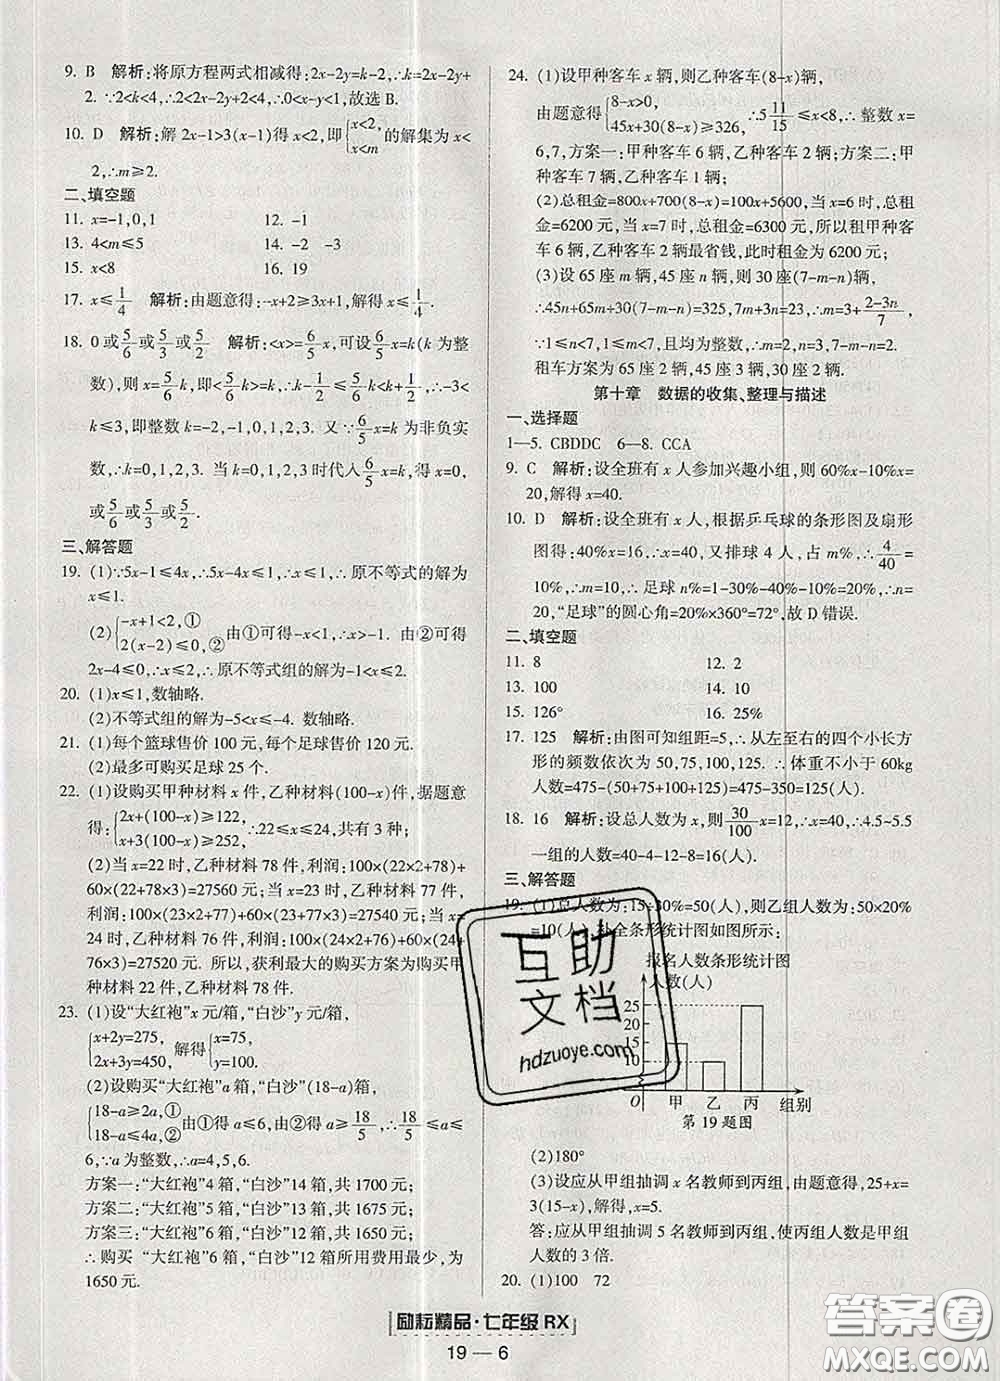 9. B 解析:将原方程两式相减得:2x-2y=k-2,∴k=2x-2y+
2. ∵2<k<4,∴2<2x-2y+2<4,∴0<x-y<1,故选 B.
10. D 解析:解 2x-1>3(x-1)得 x<2,即{x<2, x<m 的解集为 x<
2,∴m≥2.
二、填空题
11. x=-1,0,1 12. -1
13. 4<m≤5 14. -2 -3
15. x<8 16. 19
17. x≤1/4 解析:由题意得:-x+2≥3x+1,解得 x≤1/4.
18. 0或5/6或5/3或5/2 解析:<x>=6/5x,可设6/5x=k(k 为整
数),则 x=5/6k,即<5/6k>=k,∴k-1/2≤5/6k<k+1/2,∴-3<
k≤3,即整数 k=-2,-1,0,1,2,3. 又∵6/5x=k 为非负实
数,∴k=0,1,2,3. 当 k=0,1,2,3 时代入6/5x=k,得 x=0,
或5/6或5/3或5/2.
三、解答题
19. (1)∵5x-1≤4x,∴5x-4x≤1,∴x≤1,∴原不等式的解为
x≤1.
(2){-x+1<2,① 2(x-2)≤0,② 由①可得-x<1,∴x>-1. 由②可得
2x-4≤0,∴x≤2,∴原不等式组的解为-1<x≤2.
20. (1)x≤1,数轴略.
(2)不等式组的解为-5<x≤-4. 数轴略.
21. (1)每个篮球售价 100 元,每个足球售价 120 元.
(2)最多可购买足球 25 个.
22. (1)设购买甲种材料 x 件,乙种材料(100-x)件,据题意
得:{2x+(100-x)≥122, x+3(100-x)≥252, ∴22≤x≤24,共有 3 种;
(2)当 x=22 时,乙种材料 78 件,利润:100×(22×2+78)+
60×(22+78×3)=27560 元;当 x=23 时,乙种材料 77 件,
利润:100×(23×2+77)+60×(23+77×3)=27540 元;当 x=
24 时,乙种材料 76 件,利润:100×(24×2+76)+60×(24+
76×3)=27520 元. 所以,获利最大的购买方案为购买甲种
材料 22 件,乙种材料 78 件.
23. (1)设“大红袍”x 元/箱,“白沙”y 元/箱,
{x+2y=275, 2x+3y=450, 解得{x=75, y=100.
(2)设购买“大红袍”a 箱,“白沙”(18-a)箱,
{18-a≥2a,① 18-a≤4a,② 由①得 a≤6,由②得 a≥18/5,∴18/5≤a≤
6,∵a 为整数,∴a=4,5,6.
方案一:“大红袍”4 箱,“白沙”14 箱,共 1700 元;
方案二:“大红袍”5 箱,“白沙”13 箱,共 1675 元;
方案三:“大红袍”6 箱,“白沙”12 箱,共 1650 元;
∴购买“大红袍”6 箱,“白沙”12 箱所用费用最少,为
1650 元.
24. (1)设甲种客车 x 辆,则乙种客车(8-x)辆,
由题意得{8-x>0, 45x+30(8-x)≥326, ∴5 11/15≤x<8,∴整数 x=
6,7,方案一:甲种客车 6 辆,乙种客车 2 辆;方案二:甲
种客车 7 辆,乙种客车 1 辆;
(2)总租金=800x+700(8-x)=100x+5600,当 x=6 时,总租
金=6200 元,当 x=7 时,总租金=6300 元,所以租甲种客
车 6 辆,乙种客车 2 辆最省钱,此时租金为 6200 元;
(3)设 65 座 m 辆,45 座 n 辆,则 30 座(7-m-n)辆,
∴45n+65m+30(7-m-n)=325,7m+3n=23,∴m=3+2-3n/7,
∵1≤n<7,1≤m<7,且均为整数,∴m=2,n=3.
租车方案为 65 座 2 辆,45 座 3 辆,30 座 2 辆.
第十章 数据的收集、整理与描述
一、选择题
1—5. CBDDC 6—8. CCA
9. C 解析:设全班有 x 人参加兴趣小组,则 60%x-10%x=
20,解得 x=40.
10. D 解析:设全班有 x 人,根据乒乓球的条形图及扇形
图得:40%x=16,∴x=40,又排球 4 人,占 m%,∴4/40=
10%,∴m=10,∴足球 n%=1-30%-40%-10%=20%,∴n=
20,“足球”的圆心角=20%×360°=72°,故 D 错误.
二、填空题
11. 8 12. 2
13. 100 14. 10
15. 126° 16. 25%
17. 125 解析:由图可知组距=5,∴从左至右的四个小长方
形的频数依次为 50,75,100,125. ∴体重不小于 60kg
人数=475-(50+75+100+125)=475-350=125(人).
18. 16 解析:设总人数为 x,则30/100x=12,∴x=40,∴4.5~5.5
一组的人数=40-4-12-8=16(人).
三、解答题
19. (1)总人数为:15÷30%=50(人),则乙组人数为:50×20%
=10(人),补全条形统计图如图所示:
报名人数条形统计图
人数(人)
25
20
15
10
O 甲 乙 丙 组别
第 19 题图
(2)180°
(3)设应从甲组抽调 x 名教师到丙组,由题意得,25+x=
3(15-x),解得,x=5.
答:应从甲组抽调 5 名教师到丙组,使丙组人数是甲组
人数的 3 倍.
20. (1)100 72
互助
文档
hdzuoye.com
励耘精品·七年级 RX
19 — 6
答案圈
MXQE.COM